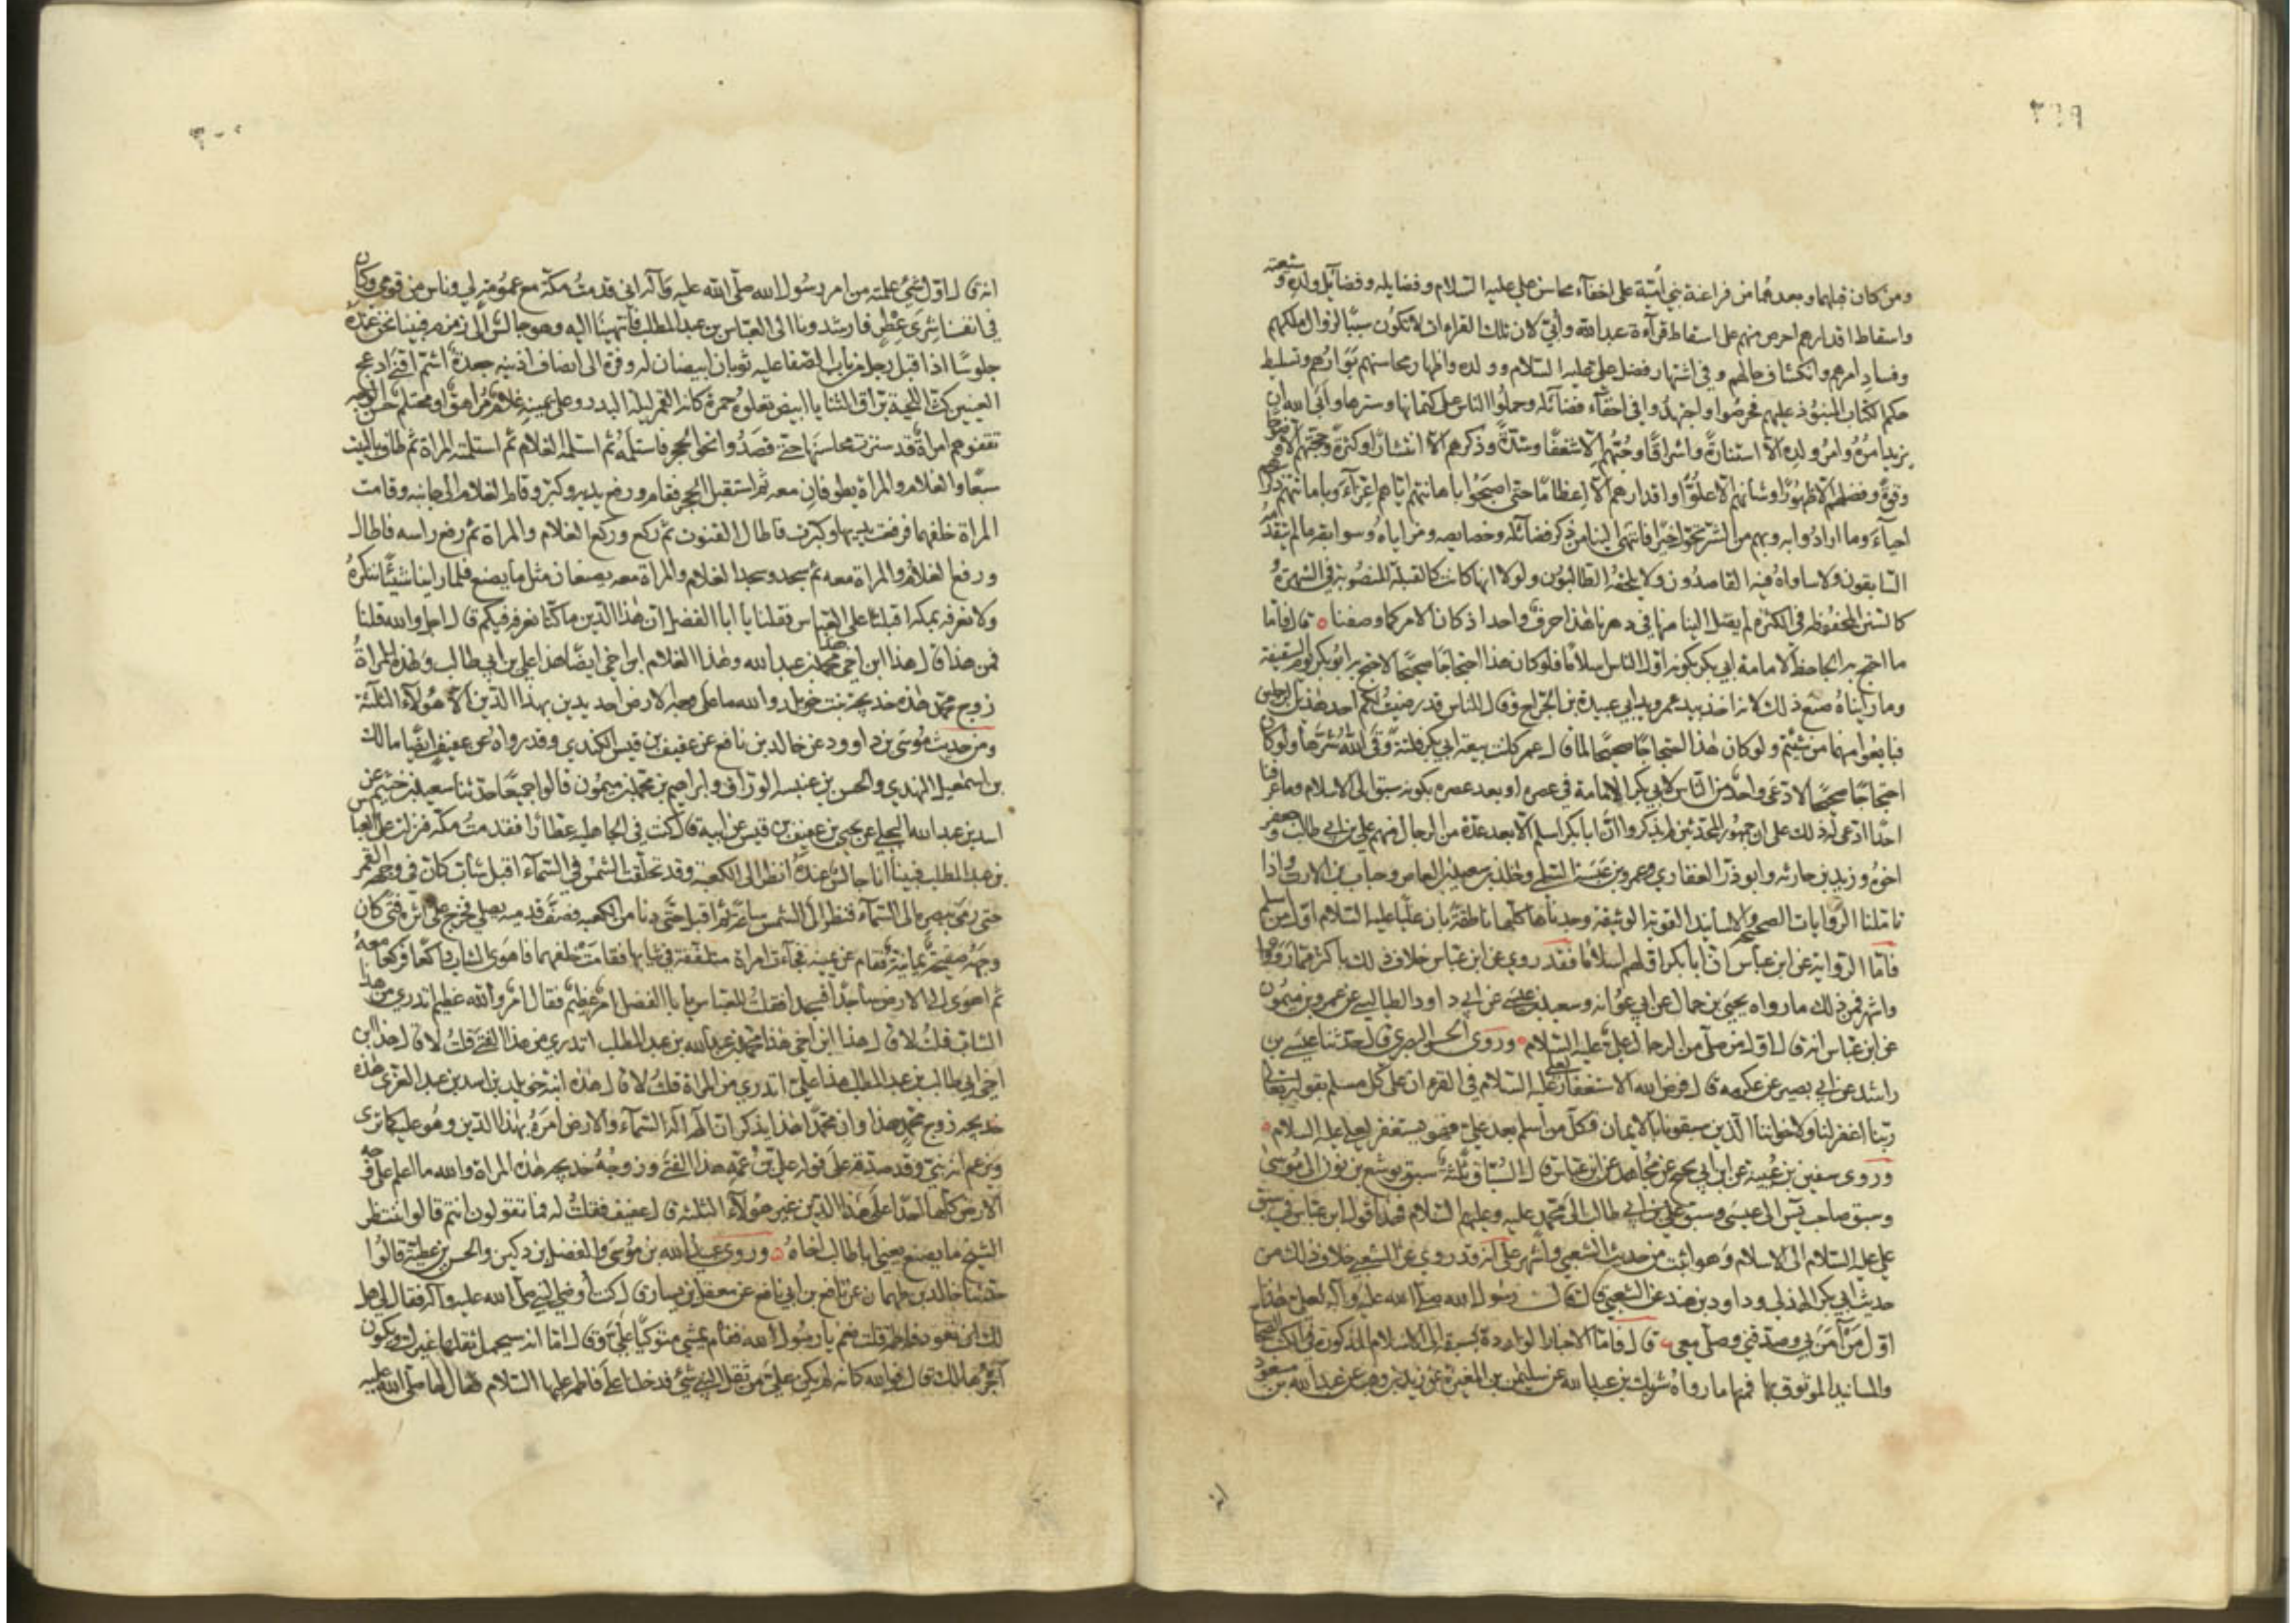 ٢٩٩
ومن كان قبلهما وبعدهما من فراعنة بني أمية على اخفآء محاسن علي عليه السلام وفضايله وفضآئل ولده وشيعته
واسقاط اقدارهم احرص منهم على اسقاط قرآءة عبدالله وأبيّ لان تلك القراءات لا تكون سببًا لزوال ملكهم
وفساد امرهم وانكشاف حالهم وفي اشتهار فضل علي عليه السلام وولده واظهار محاسنهم بوارهم وتسليط
حكم الكتاب المنبوذ عليهم فحرصوا واجتهدوا في اخفآء فضآئله وحملوا الناس على كتمانها وسترها وأبى الله ان
يزيد امره وامر ولده الّا استنارةً واشراقًا وحبّهم الّا شغفًا وشدّةً وذكرهم الّا انتشارًا وكثرةً وحجّتهم الّا وضوحا
وقوةً وفضلهم الّا ظهورًا وشأنهم الّا علوًّا واقدارهم الّا إعظامًا حتى اصبحوا باهانتهم ايّاهم اعزآء وباماتتهم ذكرهم
احيآءً وما ارادوا به وبهم من الشر تحوّل خيرًا فانتهى الينا من ذكر فضآئله وخصايصه ومزاياه وسوابقه مالم يتقدمه
السّابقون ولا ساواه فيه القاصدون ولا يلحقه الطالبون ولولا انها كانت كالقبلة المنصوبة في الشهرة
كالسنن المحفوظه في الكثرة لم يصل الينا منها في دهرنا هذا حرف واحد اذ كان الامر كما وصفنا ه قال فامّا
ما احتج به الجاحظ لامامة ابي بكر بكونه اوّل الناس اسلامًا فلو كان هذا احتجاجًا صحيحًا لاحتج به ابو بكر يوم السقيفة
وما رأيناه صنع ذلك لانه اخذ بيد عمر ويد ابي عبيدة بن الجرّاح وقال للناس قد رضيت لكم احد هذين الرجلين
فبايعوا منهما من شئتم ولو كان هذا احتجاجًا صحيحًا لما قال عمر كانت بيعة ابي بكر فلتةً وقى الله شرّها ولو كان
احتجاجًا صحيحًا لادّعى واحد من النّاس لابي بكر الامامة في عصره او بعد عصره بكونه سبق الى الاسلام وما عرفنا
احدًا ادّعى له ذلك على ان جمهور المحدثين لم يذكروا انّ ابا بكر اسلم الّا بعد عدّة من الرجال منهم علي بن ابي طالب وجعفر
اخوه وزيد بن حارثه وابو ذر الغفاري وعمرو بن عبسة السلمي وخلد بن سعيد بن العاص وخباب بن الارت واذا
تامّلنا الروايات الصحيحة والاسانيد القوية الوثيقة وجدناها كلّها ناطقةً بان عليًّا عليه السلام اوّل من اسلم
فامّا الرّواية عن ابن عباس انّ ابا بكر اولهم اسلامًا فقد روي عن ابن عباس خلاف ذلك باكثر ممّا رووا
واشهر فمن ذلك ما رواه يحيى بن حمّاد عن ابي عوانه وسعيد بن عيسى عن ابي داود الطيالسي عن عمرو بن ميمون
عن ابن عبّاس انه قال اوّل من صلّى من الرجال عليّ عليه السلام ه وروى الحسن البصري قال حدثنا عيسى بن
راشد عن ابي بصير عن عكرمه قال فرض الله الاستغفار لعلي عليه السلام في القرءان على كل مسلم بقوله تعالى
ربّنا اغفر لنا ولاخواننا الّذين سبقونا بالايمان فكلّ من أسلم بعد علي فهو يستغفر لعلي عليه السلام ه
وروى سفين بن عيينه عن ابن ابي نجيح عن مجاهد عن ابن عباس قال السُبّاق ثلثة سبق يوشع بن نون الى موسى
وسبق صاحب يس الى عيسى وسبق علي بن ابي طالب الى محمّد عليه وعليهم السّلام فهذا قول ابن عباس في سبق
علي عليه السّلام الى الاسلام وهو اثبت من حديث الشعبي واشهر على انه قد روي عن الشعبي خلاف ذلك من
حديث ابي بكر الهذلي وداود بن هند عن الشعبي قال قال رسول الله صلى الله عليه وآله لعلي هذا
اوّل من آمن بي وصدّقني وصلّى معي ه قال فامّا الاخبار الواردة بسبقه الى الاسلام المذكورة في الكتب الصحاح
والمسانيد الموثوق بها فمنها ما رواه شريك بن عبدالله عن سليمن بن المغيرة عن زيد بن وهب عن عبدالله بن مسعود
انه
٣٠٠
انه قال اوّل شئ علمته من امر رسول الله صلّى الله عليه وآله اني قدمتُ مكّة مع عمومةٍ لي وناس من قومي وكان
في انفسنا شِرَى عِطْر فارشدونا الى العبّاس بن عبدالمطلب فانتهينا اليه وهو جالس الى زمزم فبينا نحن عنده
جلوسًا اذا اقبل رجل من باب الصّفا عليه ثوبان ابيضان له وفرة الى انصاف اذنيه جعدة اشمّ اقنى ادعج
العينين كثّ اللحية برّاق الثنايا ابيض تعلوه حمرة كانه القمر ليلة البدر وعلى يمينه غلام مُراهق او محتلم حسن الوجه
تقفوهم امراة قد سترت محاسنها حتى قصدوا نحو الحجر فاستلمه ثم استلمه الغلام ثم استلمته المراة ثم طاف بالبيت
سبعًا والغلام والمراة يطوفان معه ثم استقبل الحجر فقام ورفع يديه وكبّر وقام الغلام الى جانبه وقامت
المراة خلفهما فرفعت يديها وكبّرت فاطال القنوت ثم ركع وركع الغلام والمراة ثم رفع راسه فاطال
ورفع الغلام والمراة معه ثم سجد وسجد الغلام والمراة معه يصنعان مثل ما يصنع فلما راينا شيئًا ننكره
ولا نعرفه بمكه اقبلنا على العباس فقلنا يا ابا الفضل انّ هذا الدّين ما كنّا نعرفه فيكم قال اجل والله قلنا
فمن هذا قال هذا ابن اخي هذا محمد بن عبدالله وهذا الغلام ابن اخي ايضًا هذا علي بن ابي طالب وهذه المراة
زوج محمّد هذه خديجة بنت خويلد والله ما على وجه الارض احد يدين بهذا الدّين الّا هؤلآء الثلثة
ومن حديث موسى بن داوود عن خالد بن نافع عن عفيف بن قيس الكندي وقد رواه عن عفيف ايضًا مالك
بن اسمعيل النهدي والحسن بن عنبسه الورّاق وابراهيم بن محمد بن ميمون قالوا جميعًا حدّثنا سعيد بن خثيم عن
اسد بن عبدالله البجلي عن يحيى بن عفيف بن قيس عن ابيه قال كنت في الجاهليه عطّارًا فقدمتُ مكّه فنزلت على العباس
بن عبدالمطلب فبينا انا جالس عنده انظر الى الكعبة وقد تحلّقت الشمس في السّمآء اقبل شابّ كانّ في وجهه القمر
حتى رمى ببصره الى السّمآء فنظر الى الشّمس ساعةً ثم اقبل حتّى دنا من الكعبه فصفّ قدميه يصلي فخرج على اثره فتى كان
وجهه صفيحة يمانية فقام عن يمينه فجآءت امراة متلفّفة في ثيابها فقامت خلفهما فاهوى الشاب راكعًا فركعا معه
ثم اهوى الى الارض ساجدًا فسجدا فقلت للعبّاس يا ابا الفضل امر عظيم فقال امر والله عظيم اتدري من هذا
الشاب قلت لا قال هذا ابن اخي هذا محمّد بن عبدالله بن عبدالمطلب اتدري من هذا الفتى قلت لا قال هذا ابن
اخي ابي طالب بن عبدالمطلب هذا علي اتدري من المراة قلت لا قال هذه ابنة خويلد بن اسد بن عبدالعزّى هذه
خديجه زوج محمّد هذا وان محمّدًا هذا يذكر ان الهه اله السّمآء والارض امره بهذا الدّين وهو عليه كما ترى
ويزعم انه نبيّ وقد صدّقه على قوله عليّ بن عمّه هذا الفتى وزوجته خديجه هذه المراة والله ما اعلم على وجه
الارض كلّها احدًا على هذا الدّين غير هؤلآء الثلثة قال عفيف فقلت له فما تقولون انتم قالوا ننتظر
الشيخ ما يصنع يعني ابا طالب اخاه ه وروى عبيدالله بن موسى والفضل بن دكين والحسن بن عطية قالوا
حدّثنا خالد بن طهمان عن نافع بن ابي نافع عن معقل بن يسار قال كنت أوضّي النبي صلى الله عليه وآله فقال لي هل
لك ان تعود فاطمة قلت نعم يا رسول الله فقام يمشي متوكّيًا عليّ وقال امّا انه سيحمل ثقلها غيرك ويكون
أجرها لك قال فوالله كانه لم يكن عليّ من ثقل النبي شئ فدخلنا على فاطمة عليها السلام فقال لها صلى الله عليه